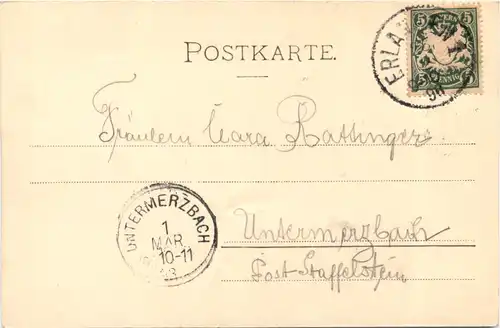 POSTKARTE.
ERLA
5 5
PFENNIG
Fräulein Clara Rattinger
UNTERMERZBACH
1
MAR.
10-11
Untermerzbach
Post Staffelstein